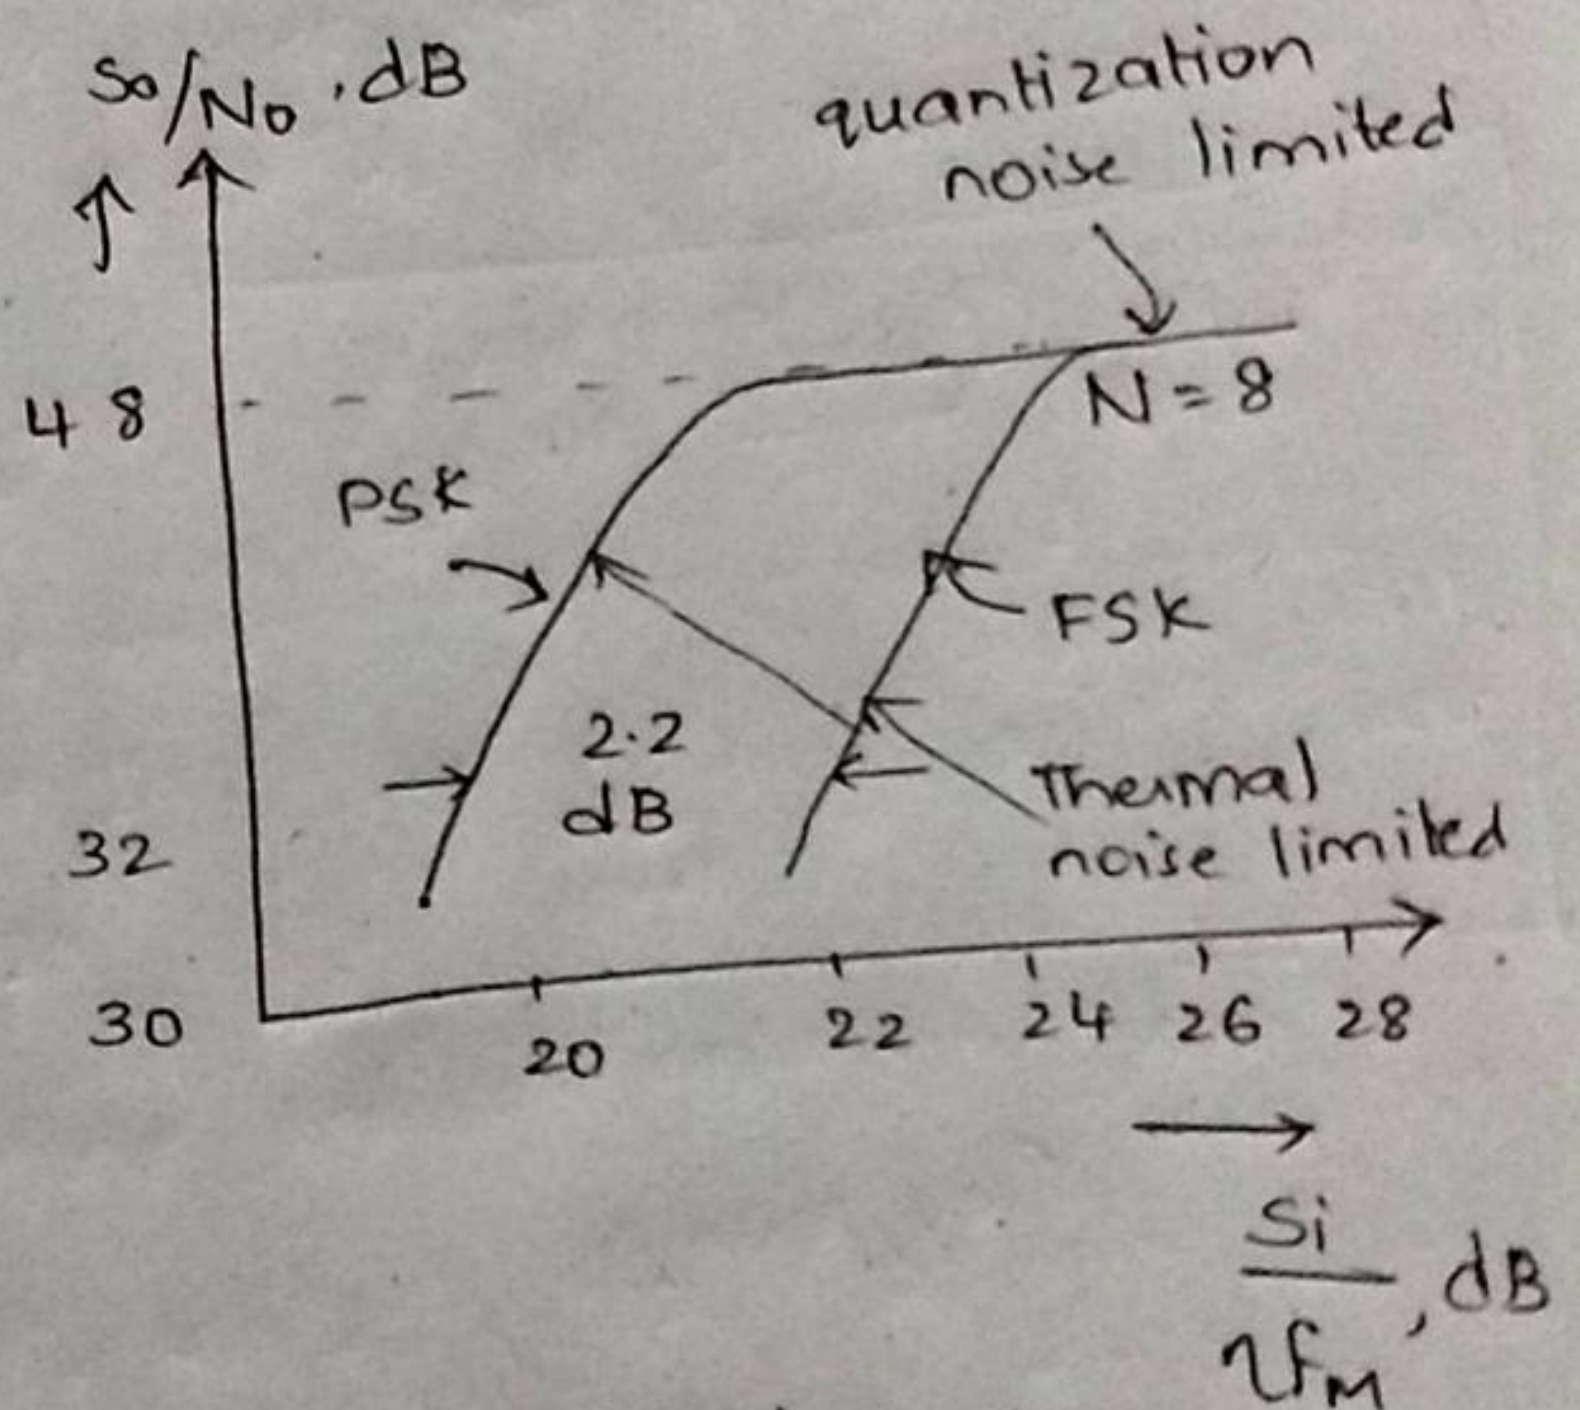 So/No , dB
quantization
noise limited
48
N = 8
PSK
FSK
2.2
dB
Thermal
noise limited
32
30
20
22
24
26
28
Si
ηfM , dB